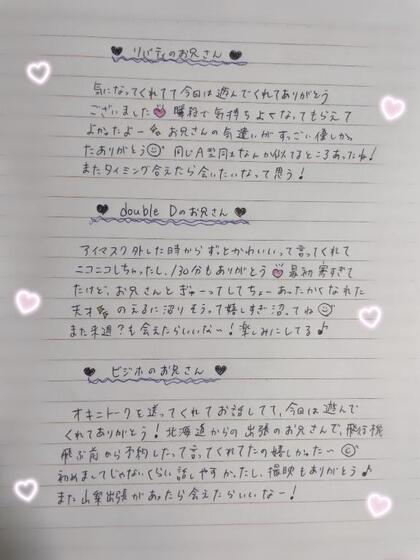 リバティのお兄さん
気になってくれてて今日は遊んでくれてありがとう
ございました 勝段で気持ちよくなってもらえて
よかったよー お兄さんの気遣いがすっごい優しかっ
たありがとう 同じA型同士なんか似てるところあったね!
またタイミング合えたら会いたいなって思う!
double Dのお兄さん
アイマスク外した時からずっとかわいいって言ってくれて
ニコニコしちゃったし、130分もありがとう 最初寒すぎて
たけど、お兄さんとぎゅーってしてちょーあったかくなれた
天才 のえるに沼りそうって嬉しすぎ沼ってね
また来週?も会えたらいいな〜!楽しみにしてる♪
ビジホのお兄さん
オキニトークを送ってくれてお話してて、今日は遊んで
くれてありがとう!北海道からの出張のお兄さんで、飛行機
飛ぶ前から予約したって言ってくれてたの嬉しかった〜
初めましてじゃないくらい話しやすかったし、撮映もありがとう♪
また山梨出張があったら会えたらいいなー!